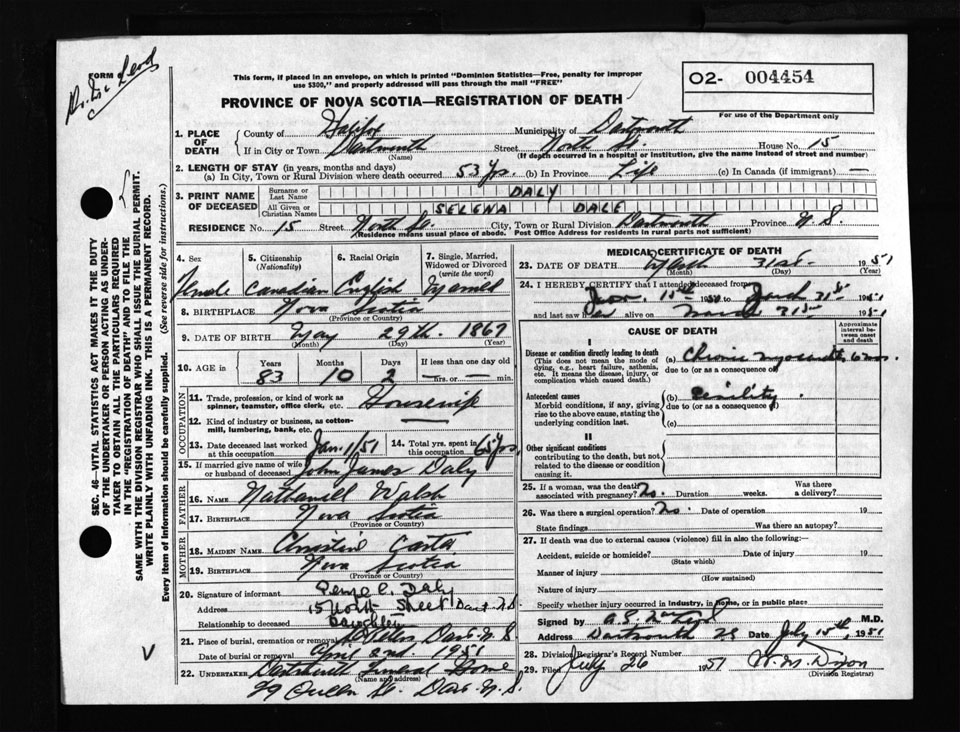 FORM
Dr. Mc Leod
This form, if placed in an envelope, on which is printed "Dominion Statistics—Free, penalty for improper
use $300," and properly addressed will pass through the mail "FREE"
PROVINCE OF NOVA SCOTIA—REGISTRATION OF DEATH
O2- 004454
For use of the Department only
1. PLACE OF DEATH { County of Halifax Municipality of Dartmouth
If in City or Town Dartmouth Street North St. House No. 15
(Name) (If death occurred in a hospital or institution, give the name instead of street and number)
2. LENGTH OF STAY (in years, months and days)
(a) In City, Town or Rural Division where death occurred 53 Yrs. (b) In Province Life (c) In Canada (if immigrant) —
3. PRINT NAME OF DECEASED { Surname or Last Name DALY
All Given or Christian Names SELENA DALE
RESIDENCE No. 15 Street North St City, Town or Rural Division Dartmouth Province N.S.
(Residence means usual place of abode. Post Office Address for residents in rural parts not sufficient)
4. Sex 5. Citizenship (Nationality) 6. Racial Origin 7. Single, Married, Widowed or Divorced (write the word)
Canadian English Married
8. BIRTHPLACE Nova Scotia
(Province or Country)
9. DATE OF BIRTH May 29th. 1867
(Month) (Day) (Year)
10. AGE in Years Months Days If less than one day old
83 10 2 — hrs. or — min.
OCCUPATION
11. Trade, profession, or kind of work as spinner, teamster, office clerk, etc. Housewife
12. Kind of industry or business, as cotton-mill, lumbering, bank, etc. —
13. Date deceased last worked at this occupation Jan. 1/51 14. Total yrs. spent in this occupation 65 Yrs.
15. If married give name of wife or husband of deceased John James Daly
FATHER
16. NAME Nathaniell Walsh
17. BIRTHPLACE Nova Scotia
(Province or Country)
MOTHER
18. MAIDEN NAME
19. BIRTHPLACE Nova Scotia
(Province or Country)
20. Signature of informant Daly
Address 15 North Street Dart. N.S.
Relationship to deceased Daughter
21. Place of burial, cremation or removal St Peters Dart. N.S
Date of burial or removal April 2nd. 1951
22. UNDERTAKER Dartmouth Funeral Home
(Name and address)
99 Queen St. Dart. N.S.
MEDICAL CERTIFICATE OF DEATH
23. DATE OF DEATH March 31st. 1951
(Month) (Day) (Year)
24. I HEREBY CERTIFY that I attended deceased from
15th to March 31st 1951
and last saw her alive on March 31st 1951
CAUSE OF DEATH
Approximate interval between onset and death
I
Disease or condition directly leading to death
(This does not mean the mode of dying, e.g., heart failure, asthenia, etc. It means the disease, injury, or complication which caused death.)
(a) Chronic myocarditis 6 mos.
due to (or as a consequence of)
Antecedent causes
Morbid conditions, if any, giving rise to the above cause, stating the underlying condition last.
(b) senility
due to (or as a consequence of)
(c)
II
Other significant conditions
contributing to the death, but not related to the disease or condition causing it.
25. If a woman, was the death associated with pregnancy? No. Duration weeks. Was there a delivery?
26. Was there a surgical operation? No. Date of operation 19
State findings Was there an autopsy?
27. If death was due to external causes (violence) fill in also the following:—
Accident, suicide or homicide? Date of injury 19
(State which)
Manner of injury
(How sustained)
Nature of injury
Specify whether injury occurred in industry, in home, or in public place
Signed by M.D.
Address Dartmouth NS Date July 15th, 1951
28. Division Registrar's Record Number
29. Filed July 26 1951 W. M. Dixon
(Division Registrar)
SEC. 46—VITAL STATISTICS ACT MAKES IT THE DUTY
OF THE UNDERTAKER OR PERSON ACTING AS UNDER-
TAKER TO OBTAIN ALL THE PARTICULARS REQUIRED
IN THE "REGISTRATION OF DEATH" AND TO FILE THE
SAME WITH THE DIVISION REGISTRAR WHO SHALL ISSUE THE BURIAL PERMIT.
WRITE PLAINLY WITH UNFADING INK. THIS IS A PERMANENT RECORD.
Every item of information should be carefully supplied. (See reverse side for instructions.)